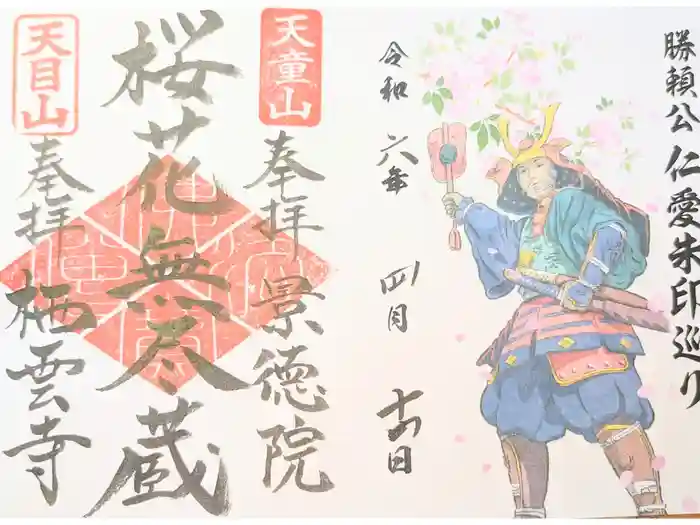 勝頼公 仁愛朱印巡り
令和六年 四月 十四日
天童山
奉拝 景徳院
桜花無尽蔵
天目山
奉拝 栖雲寺